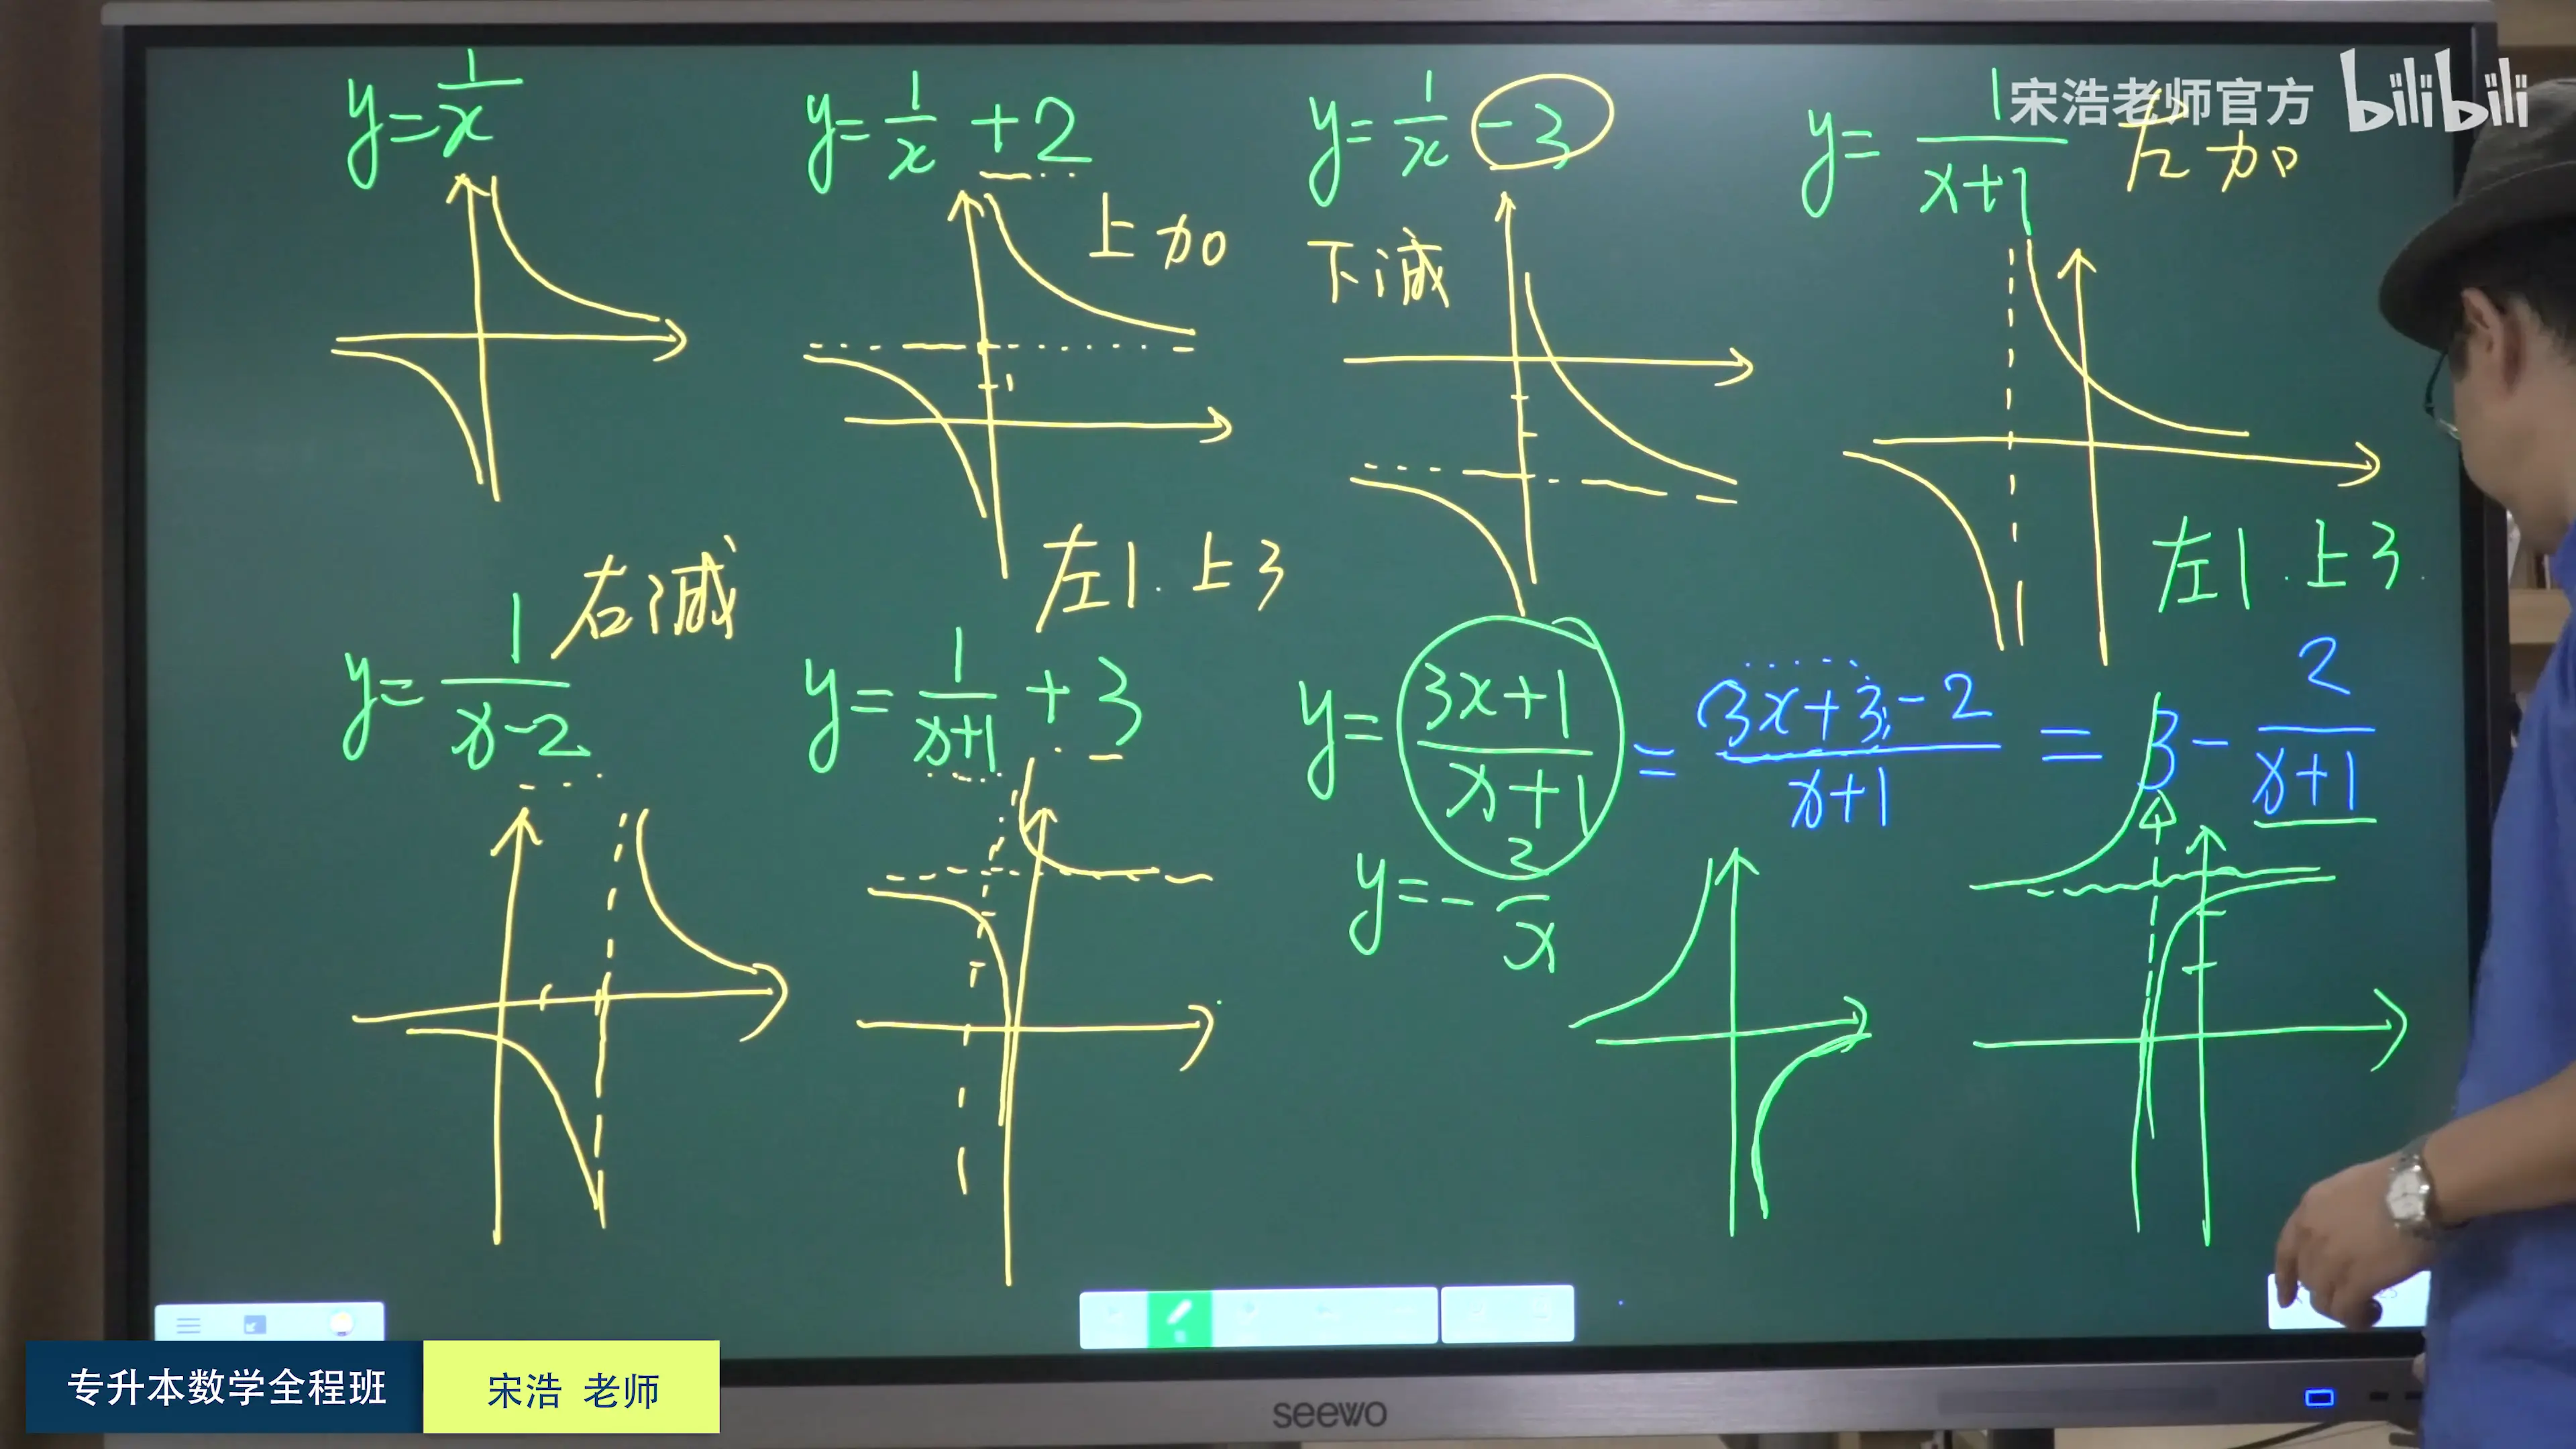 宋浩老师官方 bilibili
y=1/x
y=1/x +2
上加
y=1/x -3
下减
y=1/(x+1)
左加
y=1/(x-2)
右减
y=1/(x+1) +3
左1.上3
左1.上3.
y=(3x+1)/(x+1) = (3x+3-2)/(x+1) = 3 - 2/(x+1)
y=-2/x
专升本数学全程班
宋浩 老师
seewo